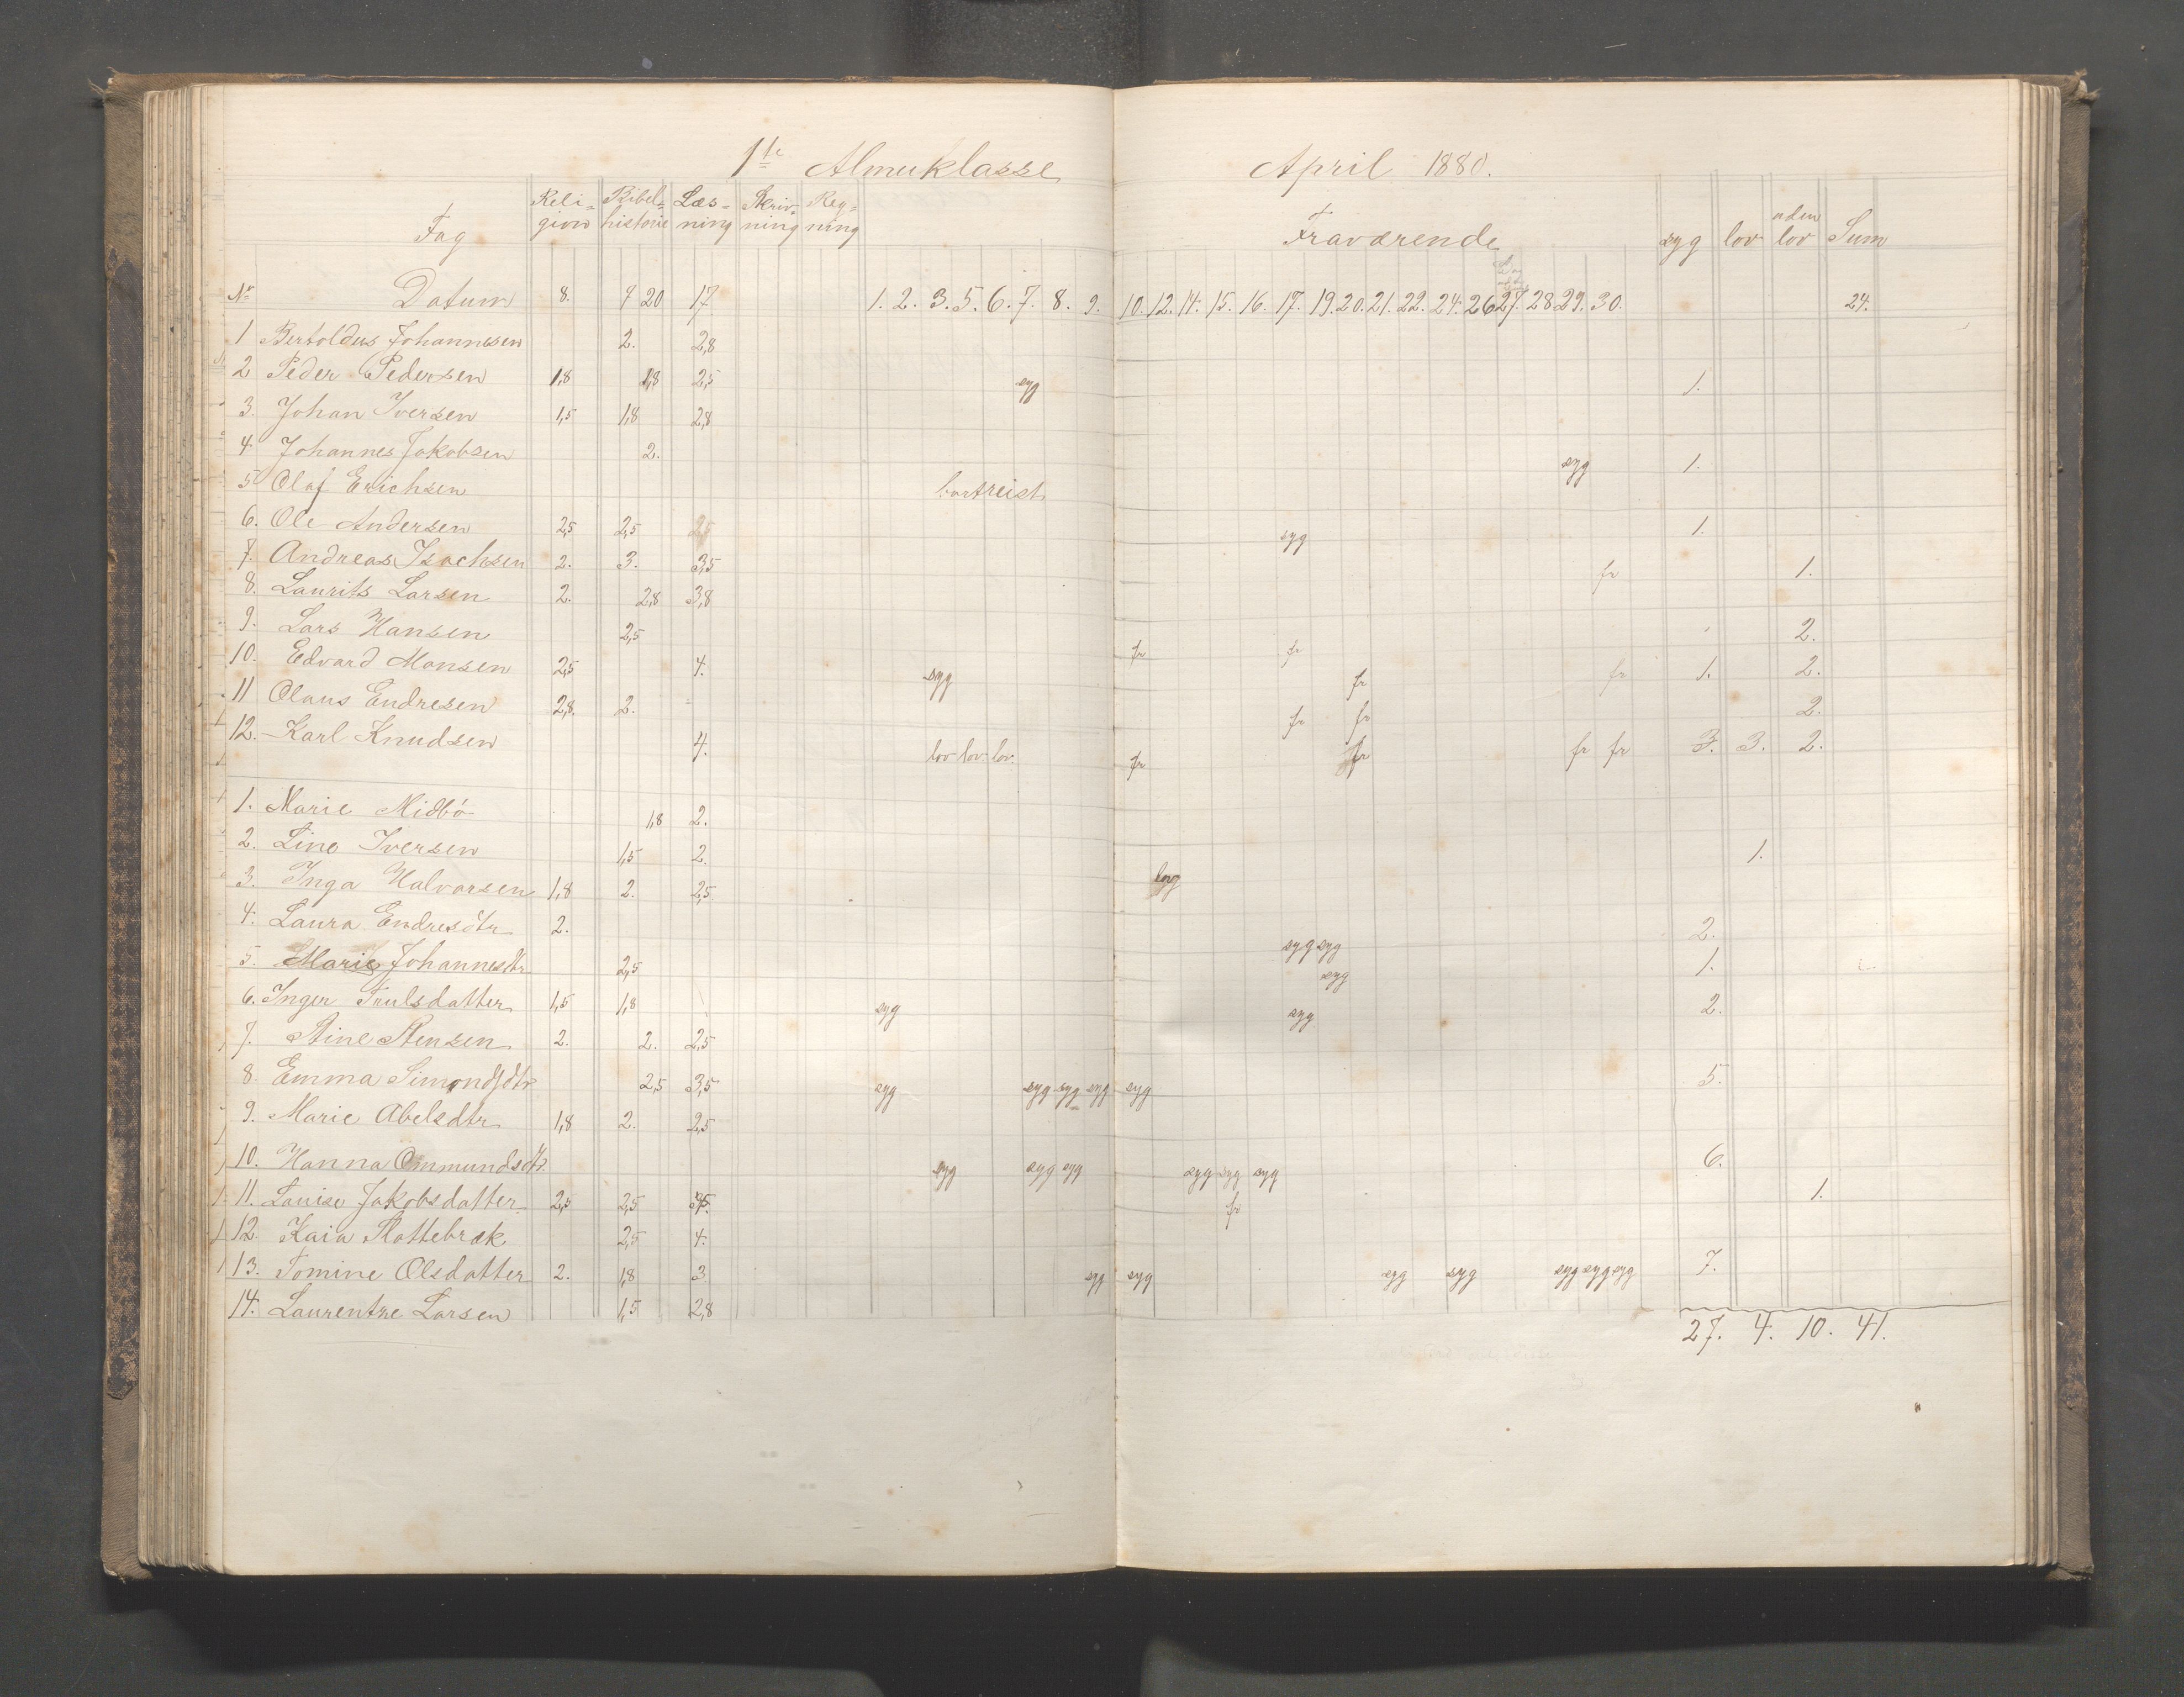 1ste Almueklasse April 1880.
Fag Religion Bibelhistorie Læsning Skrivning Regning Fraværende syg lov uden lov Sum
Nr Datum 8. 9 20 17 1. 2. 3. 5. 6. 7. 8. 9. 10. 12. 14. 15. 16. 17. 19. 20. 21. 22. 24. 26 27. 28 29. 30. 24.
1 Bertoldus Johannesen 2. 2,8
2 Peder Pedersen 1,8 1,8 2,5 syg 1.
3. Johan Iversen 1,5 1,8 2,8
4 Johannes Jakobsen 2. syg 1.
5 Olaf Erichsen bortreist
6. Ole Andersen 2,5 2,5 2,5 syg 1.
7. Andreas Isachsen 2. 3. 3,5 fr 1.
8. Laurits Larsen 2. 2,8 3,8
9. Lars Hansen 2,5 fr fr 2.
10. Edvard Monsen 2,5 4. syg fr fr 1. 2.
11 Olaus Endresen 2,8. 2. fr fr 2.
12. Karl Knudsen 4. lov lov lov. fr fr fr fr 3. 3. 2.
1. Marie Midbø 1,8 2.
2. Line Iversen 1,5 2. 1.
3. Inga Halvorsen 1,8 2. 2,5 lov
4. Laura Endresdtr 2. syg syg 2.
5. Marie Johannesdtr 2,5 syg 1.
6. Inger Trulsdatter 1,5 1,8 syg syg 2.
7. Stine Stensen 2. 2. 2,5
8. Emma Simondsdtr 2,5 3,5 syg syg syg syg syg 5.
9. Marie Abelsdtr 1,8 2. 2,5
10. Hanna Ommundsdtr syg syg syg syg syg syg 6.
11. Louise Jakobsdatter 2,5 2,5 fr 1.
12. Kaia Slottebræk 2,5 4.
13. Tomine Olsdatter 2. 1,8 3 syg syg syg syg syg syg syg 7.
14. Laurentze Larsen 1,5 2,8
27. 4. 10. 41.